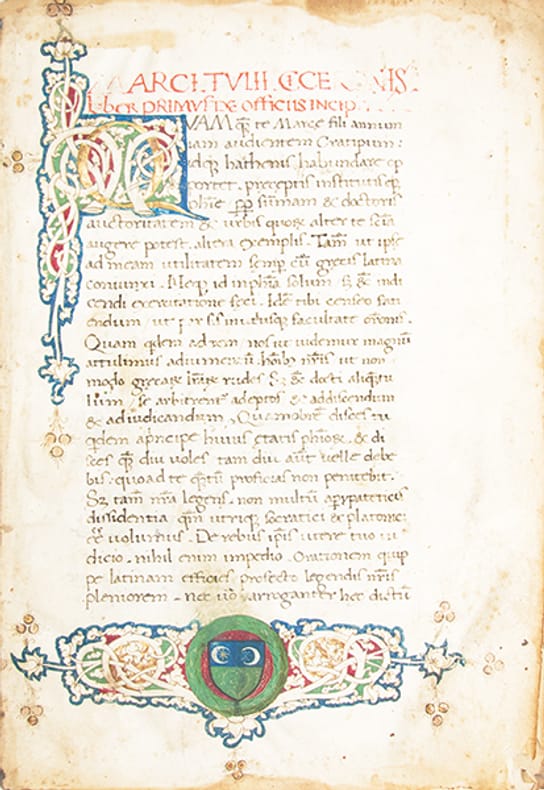 MARCI. TVLII. CICERONIS.
Liber PRIMVS DE officiis INCIP.
QVAM q̃ te Marce fili annum
iam audientem Cratipum:
idq; hathenis, habundare op
portet. preceptis institutisq;
phĩe. ꝓp sũmam & doctoris
auctoritatem & urbis quoꝝ alter te sciã
augere potest. altera exemplis. Tam̃ ut ipse
ad meam utilitatem semp̱ cũ grecis latina
coniunxi. Neq; id in phĩa solum. sꝫ &̃ in di
cendi exercitatione feci. Idẽ tibi censeo faci
endum, ut par sis in utriusq; facultate orõnis.
Quam quidem ad rem, nos ut uidemur magnũ
attulimus adiumentũ. hoĩbꝫ nr̃is ut non
modo grecaꝝ lr̃aꝝ rudes. sꝫ &̃ docti aliq̃tu
lum, se arbitrent̃ adeptos & ad discendum
& ad iudicandum, Quamobrẽ disces tu
quidem a principe huius etatis ph̃oꝝ. & di
sces q̃ diu uoles tam diu aũt uelle debe
bis. quo ad te q̃tũ proficias non penitebit.
Sꝫ tam̃ nr̃a legens. non multũ a perypateticis
dissidentia qm̃ utriq; socratici & platonici
eẽ uolumus. De rebus ip̃is utere tuo iu
dicio. nihil enim impedio. Orationem quip
pe latinam efficies profecto legendis nr̃is
pleniorem. nec uo arroganter hec dictũ